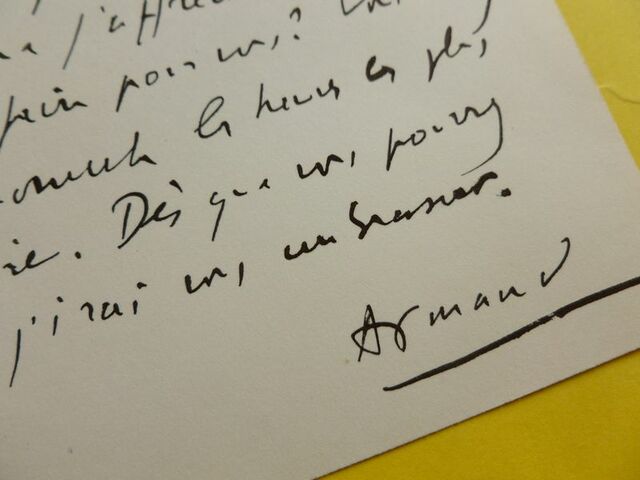 j'affre
faire pour vous? Vou
les heures les plus
ie. Dès que vous pourrez
j'irai vous embrasser.
Armand